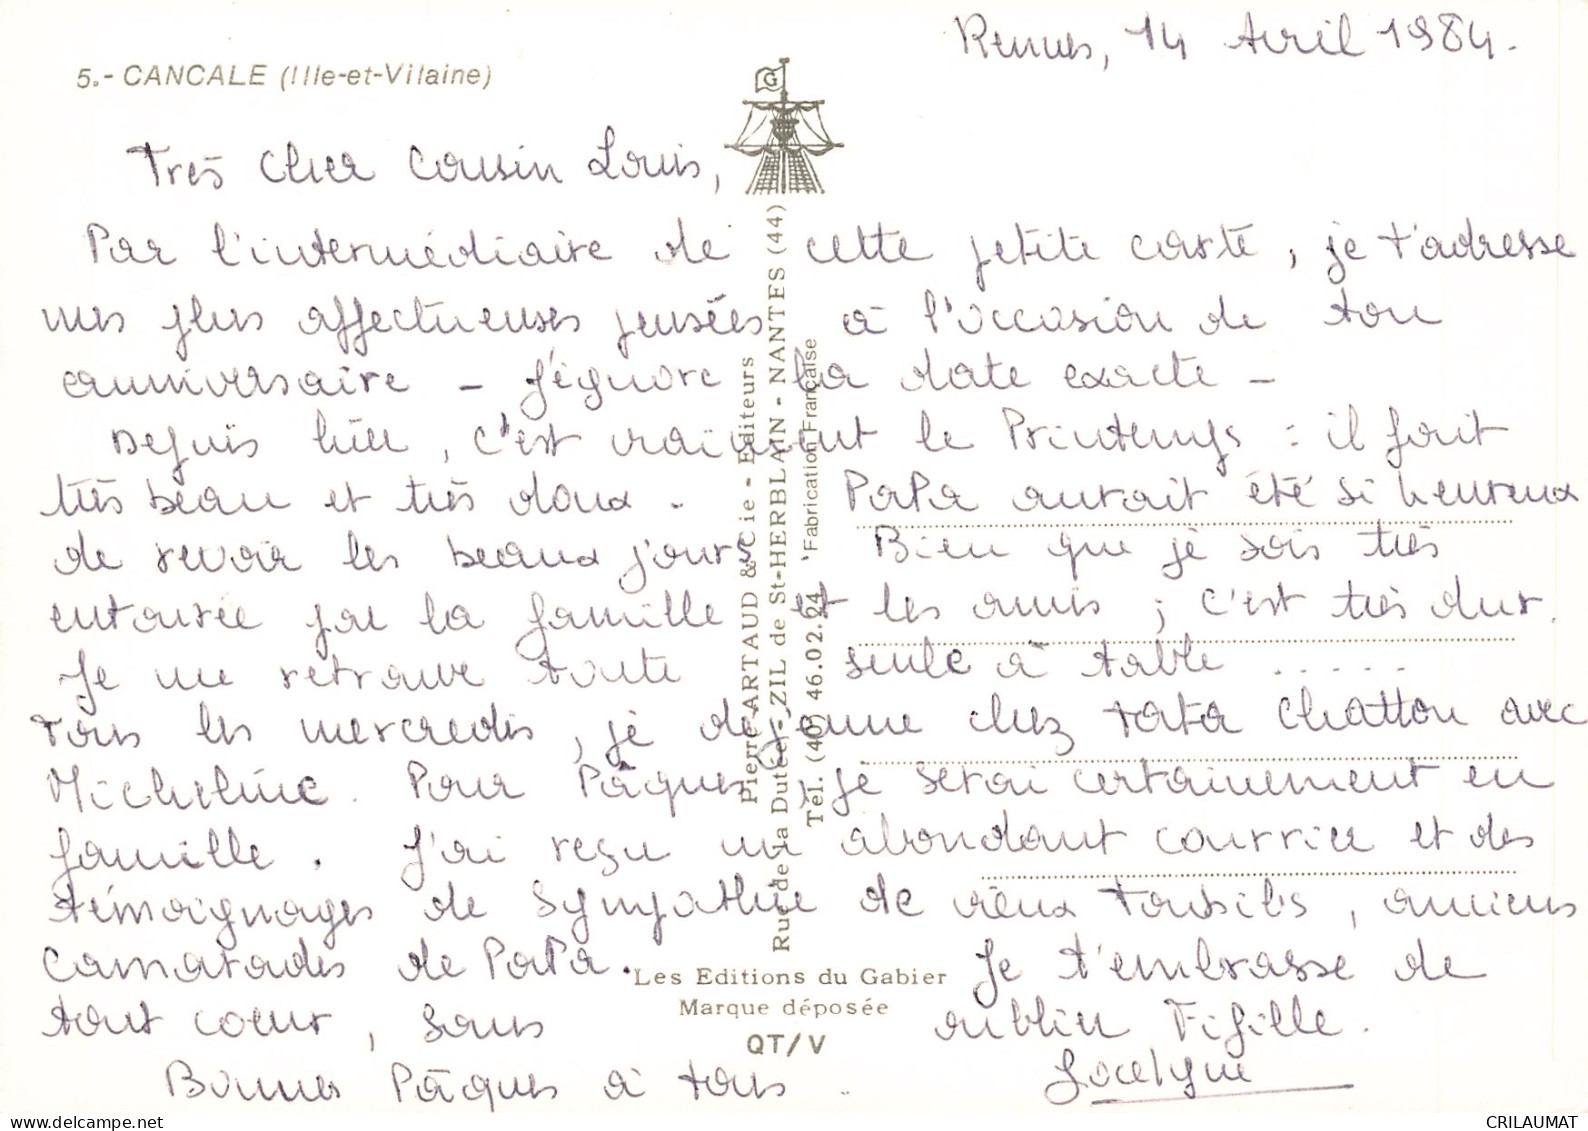 Rennes, 14 Avril 1984.
5.- CANCALE (Ille-et-Vilaine)
G
Très cher Cousin Louis,
Par l'intermédiaire de cette petite carte, je t'adresse
mes plus affectueuses pensées à l'occasion de ton
anniversaire - j'égnore la date exacte -
Depuis hier, c'est vraiment le Printemps : il fait
très beau et très doux. PaPa aurait été si heureux
de revoir les beaux jours Bien que je sois très
entourée par la famille et les amis ; c'est très dur.
Je me retrouve toute seule à table .....
Tous les mercredis, je déjeune chez tata Chatton avec
Micheline. Pour Pâques, je serai certainement en
famille. J'ai reçu un abondant courrier et des
témoignages de sympathie de vieux
, anciens
camarades de PaPa. Je t'embrasse de
tout coeur, sans oublier Fifille.
Bonnes Pâques à tous Jocelyne
Pierre ARTAUD & Cie - Editeurs
Rue de la Dutée - ZIL de St-HERBLAIN - NANTES (44)
Tél. (40) 46.02.24 Fabrication Française
Les Editions du Gabier
Marque déposée
QT/V
www.delcampe.net
CRILAUMAT